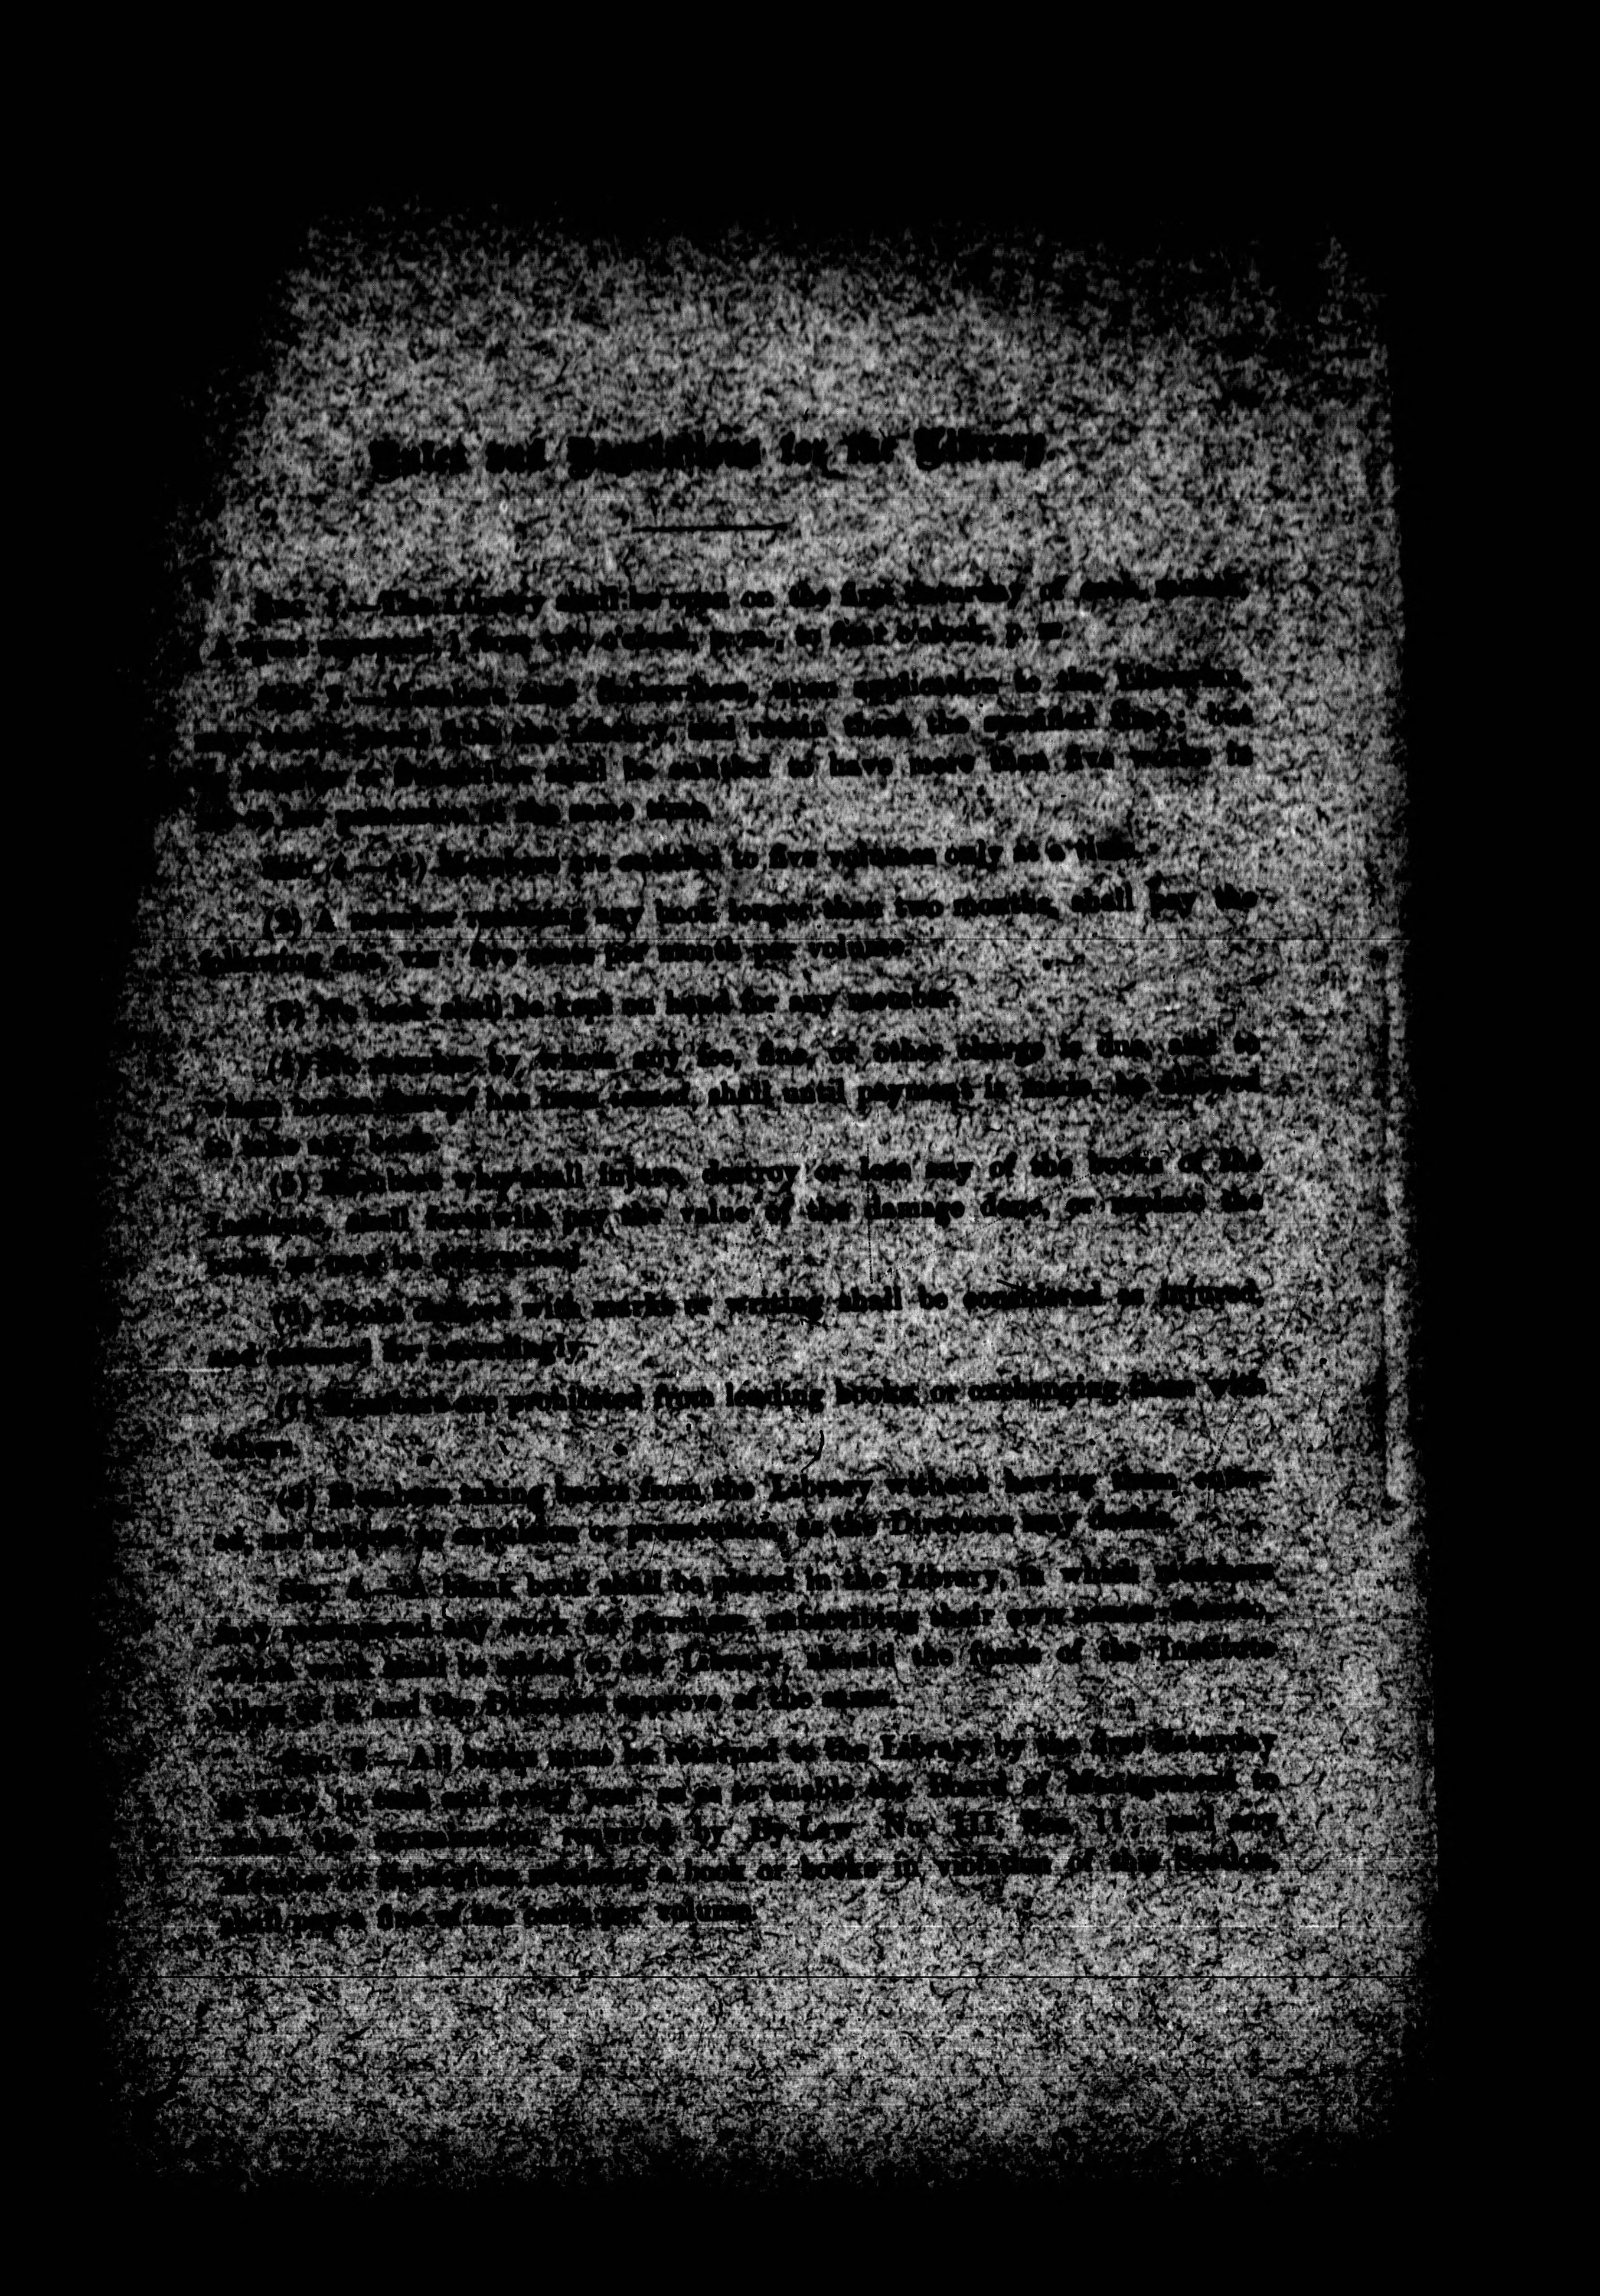 Rules and Regulations for the Library.
Sec. 1.—The Library shall be open on the first Saturday of each month,
excepted, from two o'clock, p. m., to four o'clock, p. m.
Sec. 2.—Members and Subscribers, upon application to the Librarian,
may from the Library and retain them the specified time; but
no Member or Subscriber shall be entitled to have more than five works in
his or her possession at the same time.
(1) Members are entitled to five volumes only at a time.
(2) A member retaining any book longer than two months, shall pay the
following fine, viz: five cents per month per volume.
(3) No book shall be kept on hand for any member.
(4) No member by whom any fee, fine, or other charge is due, and to
whom notice thereof has been issued, shall until payment is made, be allowed
to take any book.
(5) Members who shall injure, destroy or lose any of the books of the
Institute, shall forthwith pay the value of the damage done, or replace the
book, as may be determined.
(6) Books defaced with marks or writing shall be considered as injured,
and charged for accordingly.
(7) Members are prohibited from lending books, or exchanging them with
others.
(8) Members taking books from the Library without having them enter-
ed, are subject to expulsion or prosecution, as the Directors may decide.
Sec. 4.—A blank book shall be placed in the Library, in which members
may recommend any work for purchase, subscribing their own names thereto,
which work shall be added to the Library, should the funds of the Institute
allow of it, and the Directors approve of the same.
Sec. 5.—All books must be returned to the Library by the first Saturday
in this and every year so as to enable the Board of Management to
make the examination required by By-Law No. III, Sec. 11; and any
Member or Subscriber retaining a book or books in violation of this Section,
shall pay a fine of ten cents per volume.